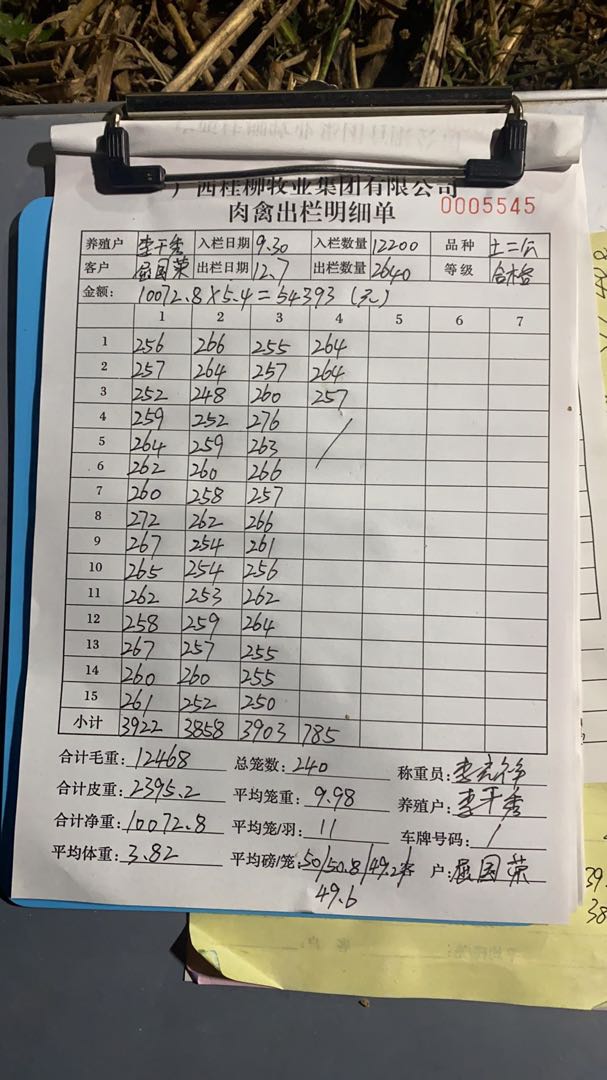 广西桂柳牧业集团有限公司
肉禽出栏明细单 0005545
养殖户 李干秀 入栏日期 9.30 入栏数量 12200 品种 土二公
客户 屈国荣 出栏日期 12.7 出栏数量 2640 等级 合格
金额: 10072.8×5.4=54393(元)
1 2 3 4 5 6 7
1 256 266 255 264
2 257 264 257 264
3 252 248 260 257
4 259 252 276
5 264 259 263
6 262 260 266
7 260 258 257
8 272 262 266
9 267 254 261
10 265 254 256
11 262 253 262
12 258 259 264
13 267 257 255
14 260 260 255
15 261 252 250
小计 3922 3858 3903 785
合计毛重: 12468 总笼数: 240 称重员:
合计皮重: 2395.2 平均笼重: 9.98 养殖户: 李干秀
合计净重: 10072.8 平均笼/羽: 11 车牌号码: /
平均体重: 3.82 平均磅/笼: 50/50.8/49.2/ 客户: 屈国荣
49.6